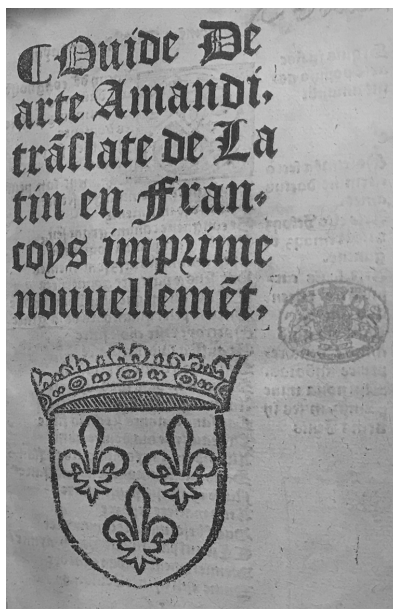 ⁋Ouide De
arte Amandi,
trãslate de La
tin en Fran⸗
coys imprime
nouuellemẽt,